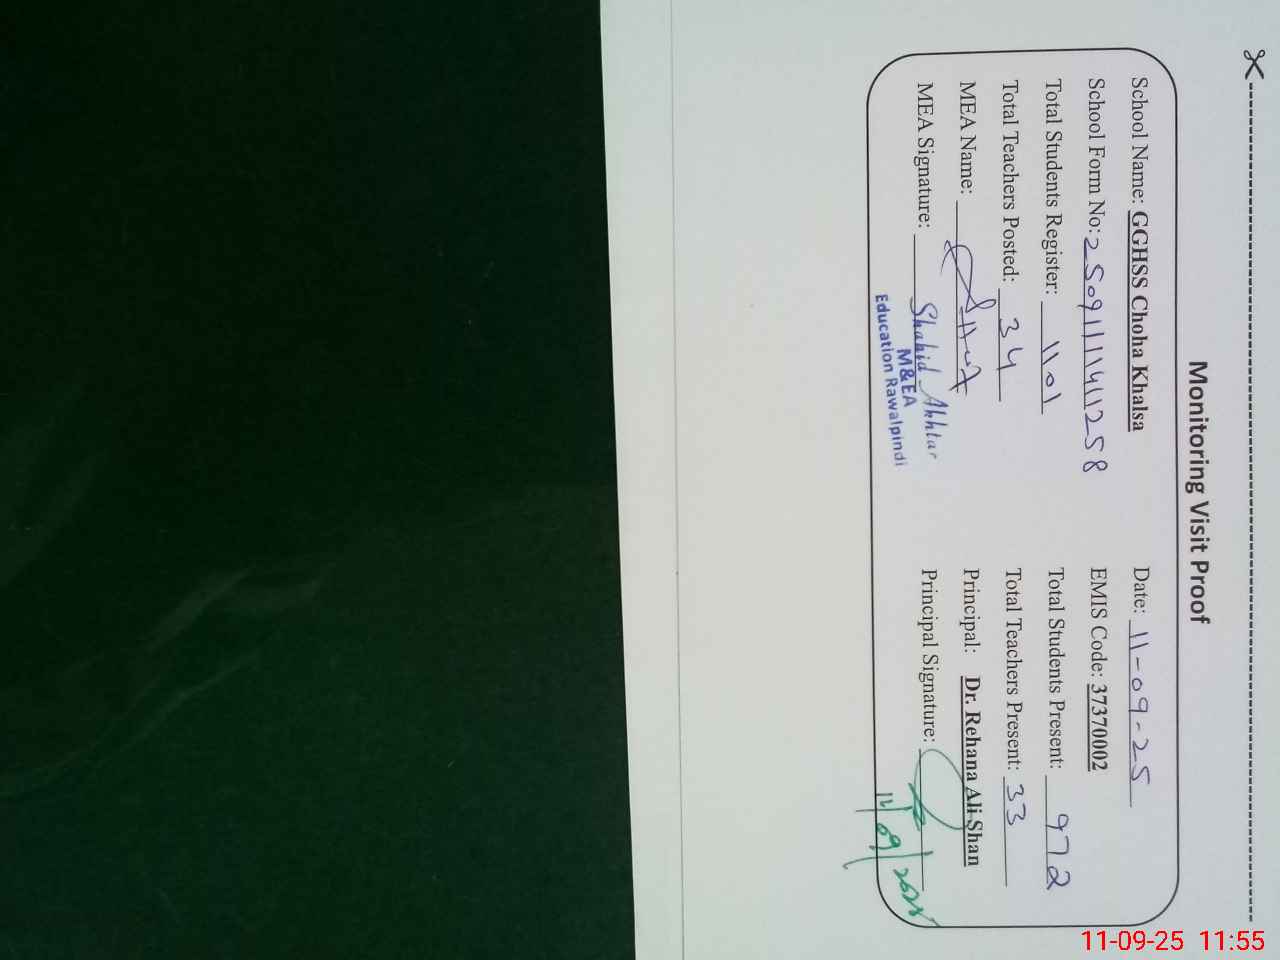 Monitoring Visit Proof
School Name: GGHSS Choha Khalsa Date: 11-09-25
School Form No: 2509111411258 EMIS Code: 37370002
Total Students Register: 1101 Total Students Present: 972
Total Teachers Posted: 34 Total Teachers Present: 33
MEA Name: Principal: Dr. Rehana Ali Shan
MEA Signature: Shahid Akhtar Principal Signature:
M&EA
Education Rawalpindi
11/09/2025
11-09-25 11:55